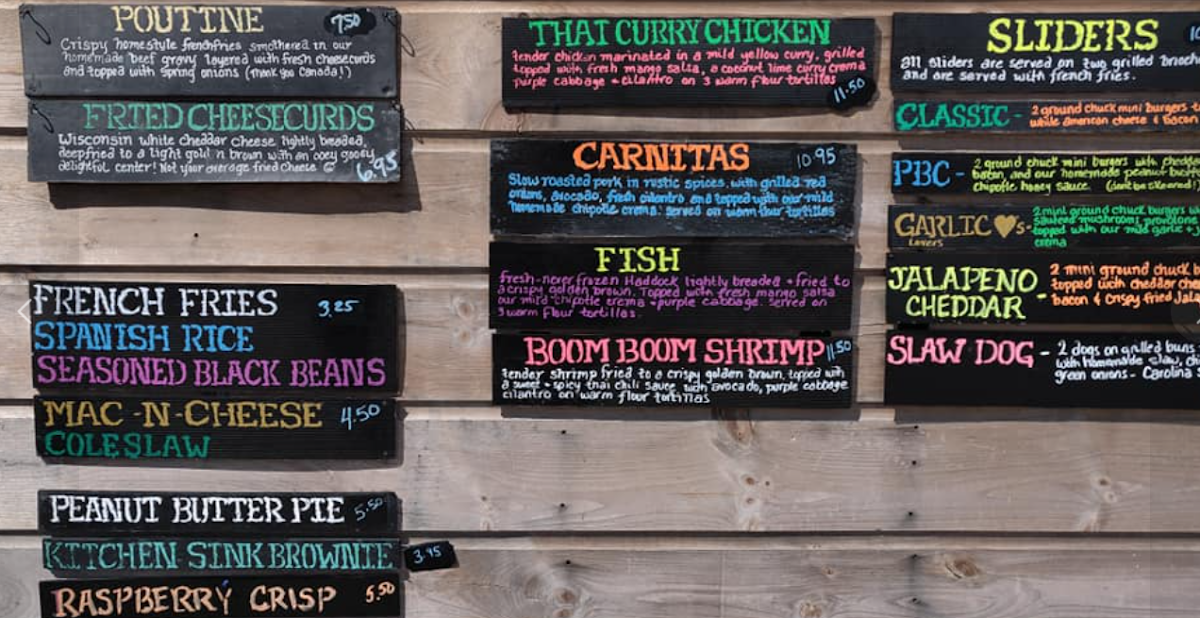 POUTINE 7.50
Crispy homestyle frenchfries smothered in our
homemade beef gravy layered with fresh cheesecurds
and topped with spring onions (thank you Canada!)
FRIED CHEESECURDS
Wisconsin white cheddar cheese lightly breaded,
deepfried to a light gold n brown with an ooey gooey
delightful center! Not your average fried cheese 6.95
FRENCH FRIES 3.25
SPANISH RICE
SEASONED BLACK BEANS
MAC-N-CHEESE 4.50
COLESLAW
PEANUT BUTTER PIE 5.50
KITCHEN SINK BROWNIE 3.95
RASPBERRY CRISP 5.50
THAI CURRY CHICKEN
tender chicken marinated in a mild yellow curry, grilled
topped with fresh mango salsa, a coconut lime curry crema
purple cabbage + cilantro on 3 warm flour tortillas
11.50
CARNITAS 10.95
Slow roasted pork in rustic spices, with grilled red
onions, avocado, fresh cilantro and topped with our mild
homemade chipotle crema. served on warm flour tortillas
FISH
fresh-never frozen Haddock lightly breaded + fried to
a crispy golden brown. Topped with fresh mango salsa
our mild chipotle crema + purple cabbage. served on
3 warm flour tortillas.
BOOM BOOM SHRIMP 11.50
tender shrimp fried to a crispy golden brown, topped with
a sweet + spicy thai chili sauce with avocado, purple cabbage
cilantro on warm flour tortillas
SLIDERS 10
all sliders are served on two grilled brioche
and are served with french fries.
CLASSIC - 2 ground chuck mini burgers
white american cheese & bacon
PBC - 2 ground chuck mini burgers with chedd
bacon, and our homemade peanut butt
chipotle honey sauce. (don't be
GARLIC ♥'s - 2 mini ground chuck burgers w
Lovers sauteed mushrooms, provolone
topped with our mild garlic +
crema
JALAPENO CHEDDAR - 2 mini ground chuck b
topped with cheddar chee
bacon & crispy fried Jala
SLAW DOG - 2 dogs on grilled buns
with homemade slaw, ch
green onions - Carolina S